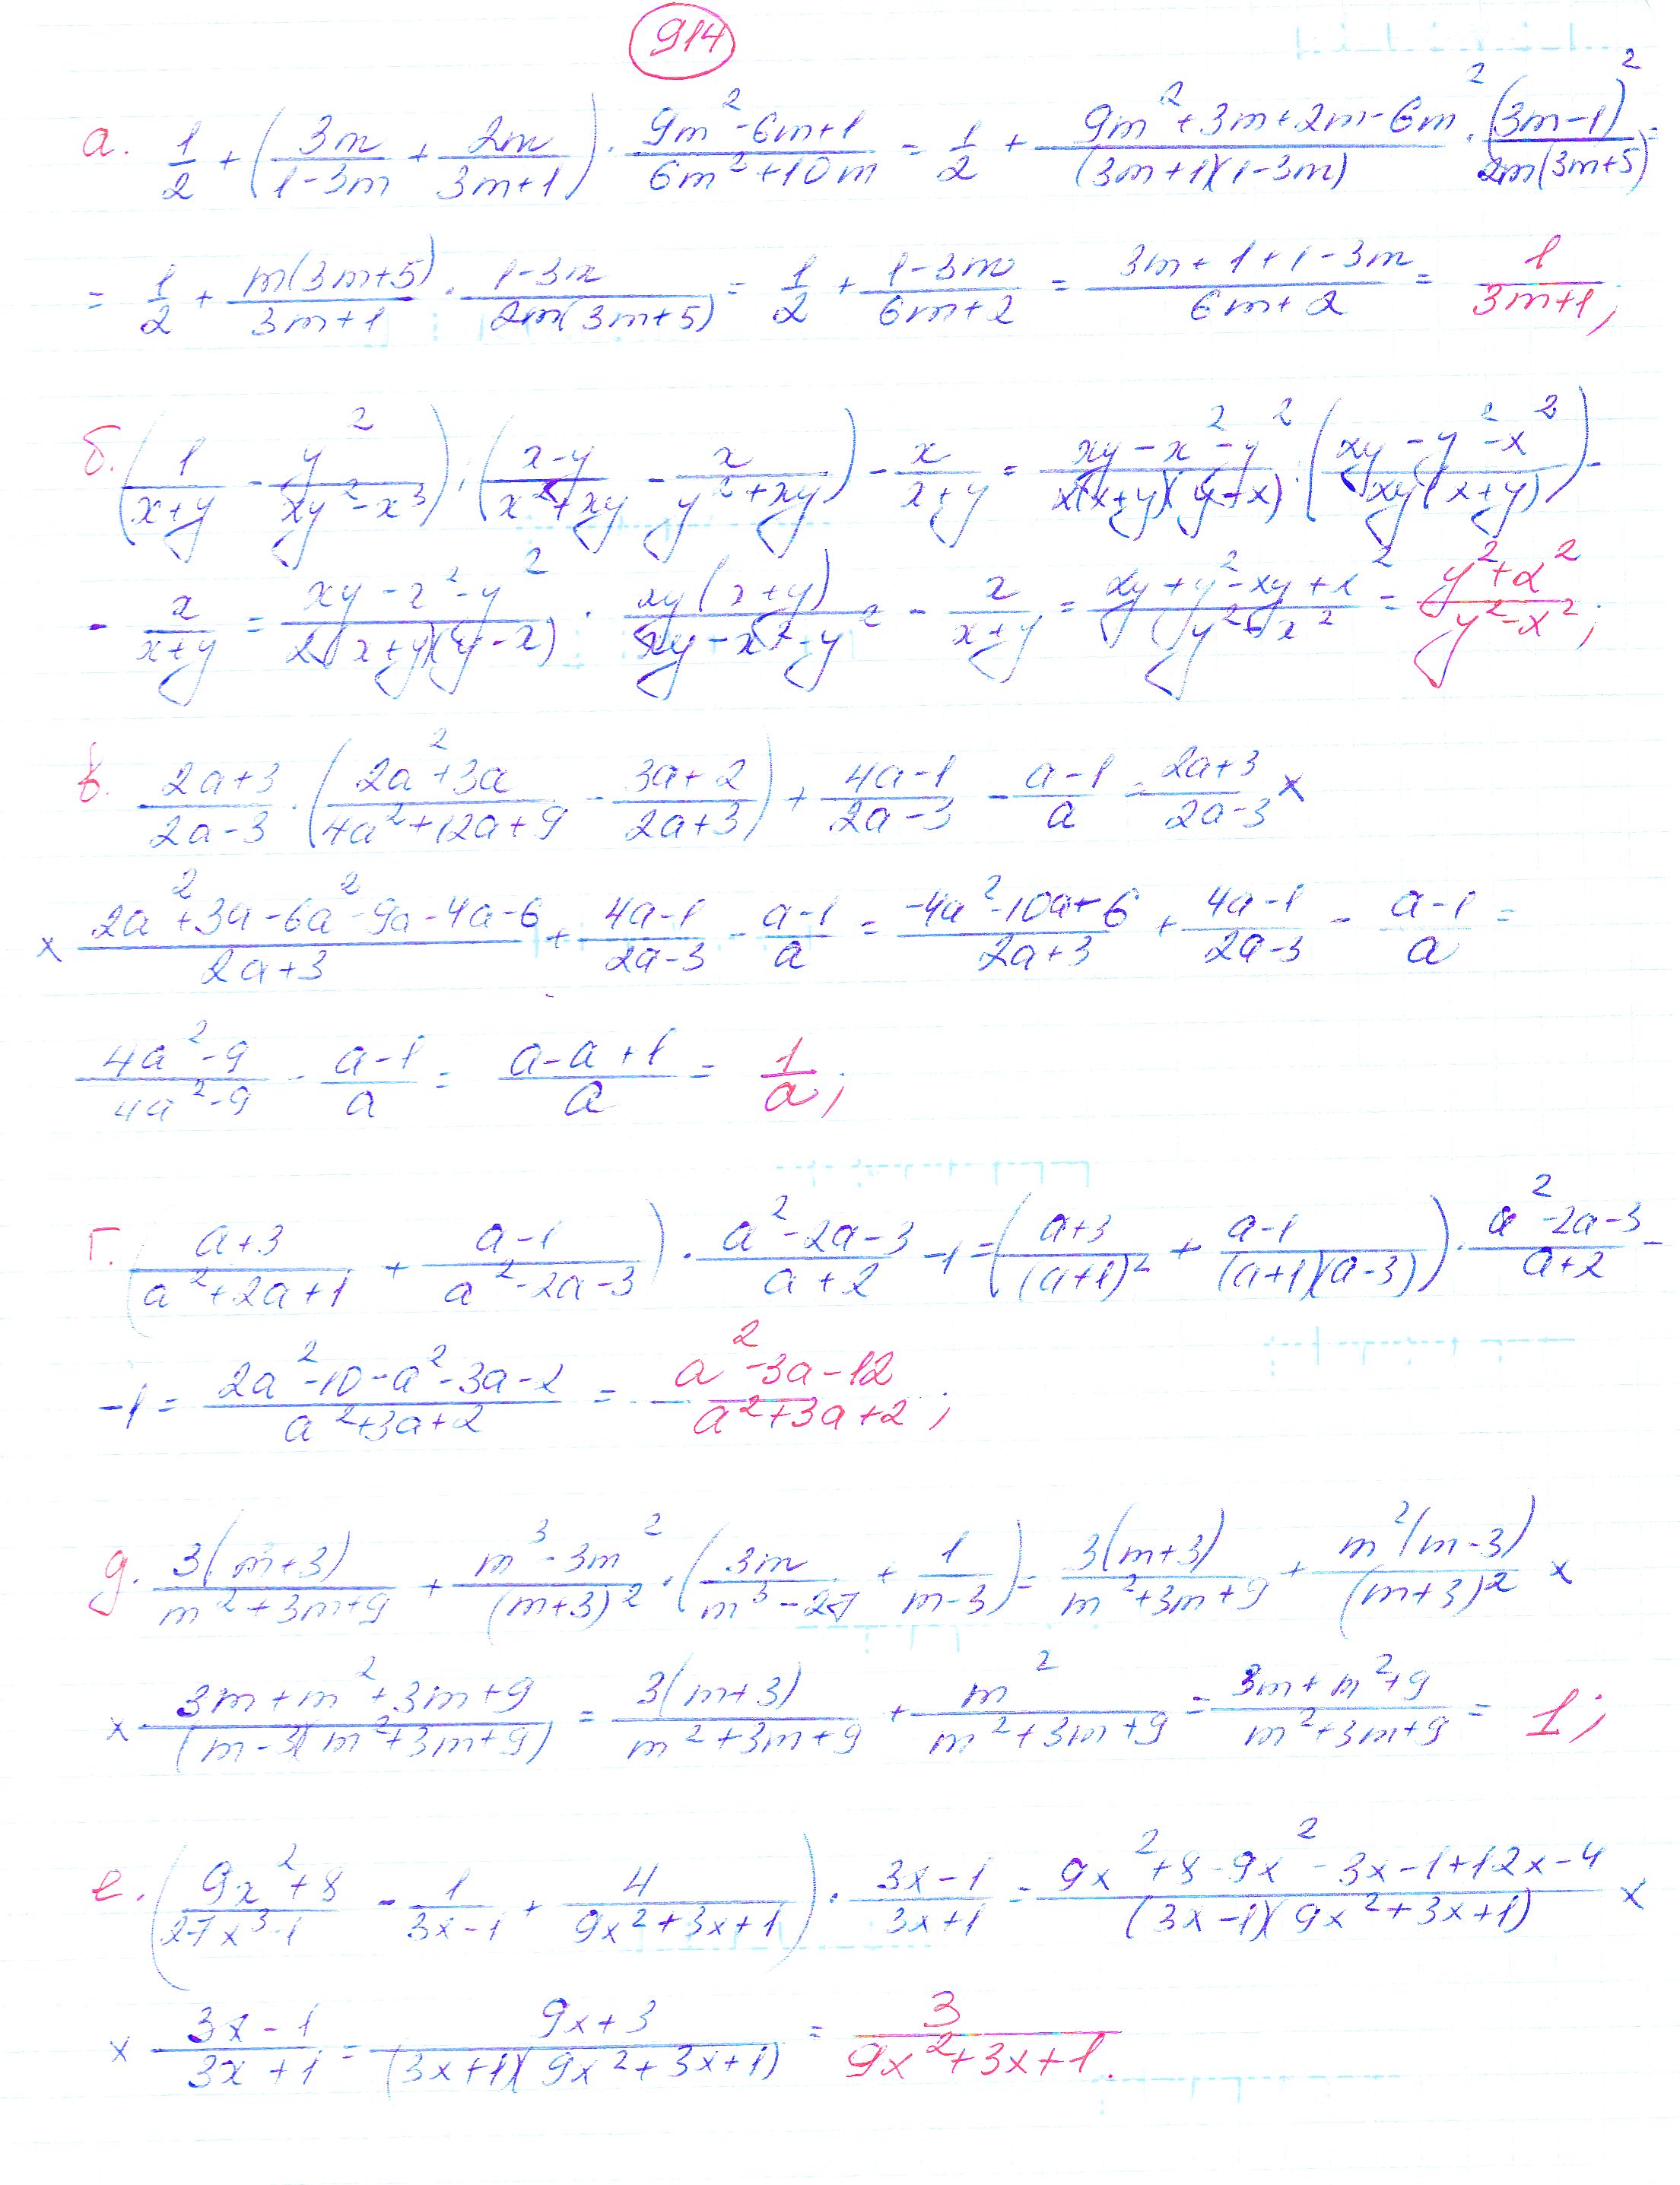 914
а. 1/2 + (3m/(1-3m) + 2m/(3m+1)) · (9m²-6m+1)/(6m²+10m) = 1/2 + (9m²+3m+2m-6m²)/((3m+1)(1-3m)) · (3m-1)²/(2m(3m+5)) =
= 1/2 + m(3m+5)/(3m+1) · (1-3m)/(2m(3m+5)) = 1/2 + (1-3m)/(6m+2) = (3m+1+1-3m)/(6m+2) = 1/(3m+1);
б. (1/(x+y) - y²/(xy²-x³)) : ((x-y)/(x²+xy) - x/(y²+xy)) - x/(x+y) = (xy-x²-y²)/(x(x+y)(y-x)) : ((xy-y²-x²)/(xy(x+y))) -
- x/(x+y) = (xy-x²-y²)/(x(x+y)(y-x)) · xy(x+y)/(xy-x²-y²) - x/(x+y) = (xy+y²-xy+x²)/(y²-x²) = (y²+x²)/(y²-x²);
в. (2a+3)/(2a-3) · ((2a²+3a)/(4a²+12a+9) - (3a+2)/(2a+3)) + (4a-1)/(2a-3) - (a-1)/a = (2a+3)/(2a-3) ×
× (2a²+3a-6a²-9a-4a-6)/(2a+3) + (4a-1)/(2a-3) - (a-1)/a = (-4a²-10a+6)/(2a+3) + (4a-1)/(2a-3) - (a-1)/a =
(4a²-9)/(4a²-9) - (a-1)/a = (a-a+1)/a = 1/a;
г. ((a+3)/(a²+2a+1) + (a-1)/(a²-2a-3)) · (a²-2a-3)/(a+2) - 1 = ((a+3)/(a+1)² + (a-1)/((a+1)(a-3))) · (a²-2a-3)/(a+2) -
-1 = (2a²-10-a²-3a-2)/(a²+3a+2) = (a²-3a-12)/(a²+3a+2);
д. 3(m+3)/(m²+3m+9) + (m³-3m²)/(m+3)² · (3m/(m³-27) + 1/(m-3)) = 3(m+3)/(m²+3m+9) + m²(m-3)/(m+3)² ×
× (3m+m²+3m+9)/((m-3)(m²+3m+9)) = 3(m+3)/(m²+3m+9) + m²/(m²+3m+9) = (3m+m²+9)/(m²+3m+9) = 1;
е. ((9x²+8)/(27x³-1) - 1/(3x-1) + 4/(9x²+3x+1)) · (3x-1)/(3x+1) = (9x²+8-9x²-3x-1+12x-4)/((3x-1)(9x²+3x+1)) ×
× (3x-1)/(3x+1) = (9x+3)/((3x+1)(9x²+3x+1)) = 3/(9x²+3x+1).